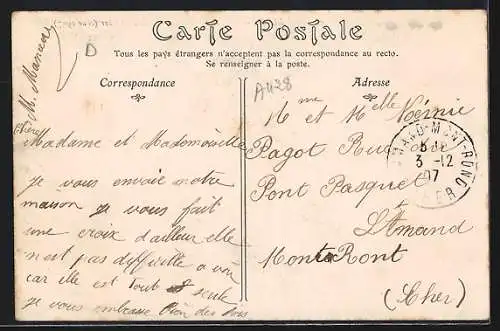 Carte Postale
Tous les pays étrangers n'acceptent pas la correspondance au recto.
Se renseigner à la poste.
Correspondance
Adresse
D
A428
Madame et Mademoiselle
je vous envoie notre
maison je vous fait
une croix d'ailleur elle
n'est pas difficille a voir
car ille est tout seule
je vous embrasse bien des fois
Mme et Melle Noémie
Pagot Rue
Pont Pasquet
St Amand
Mont Ront
(Cher)
AMAND-MONT-ROND
3 -12
07
CHER